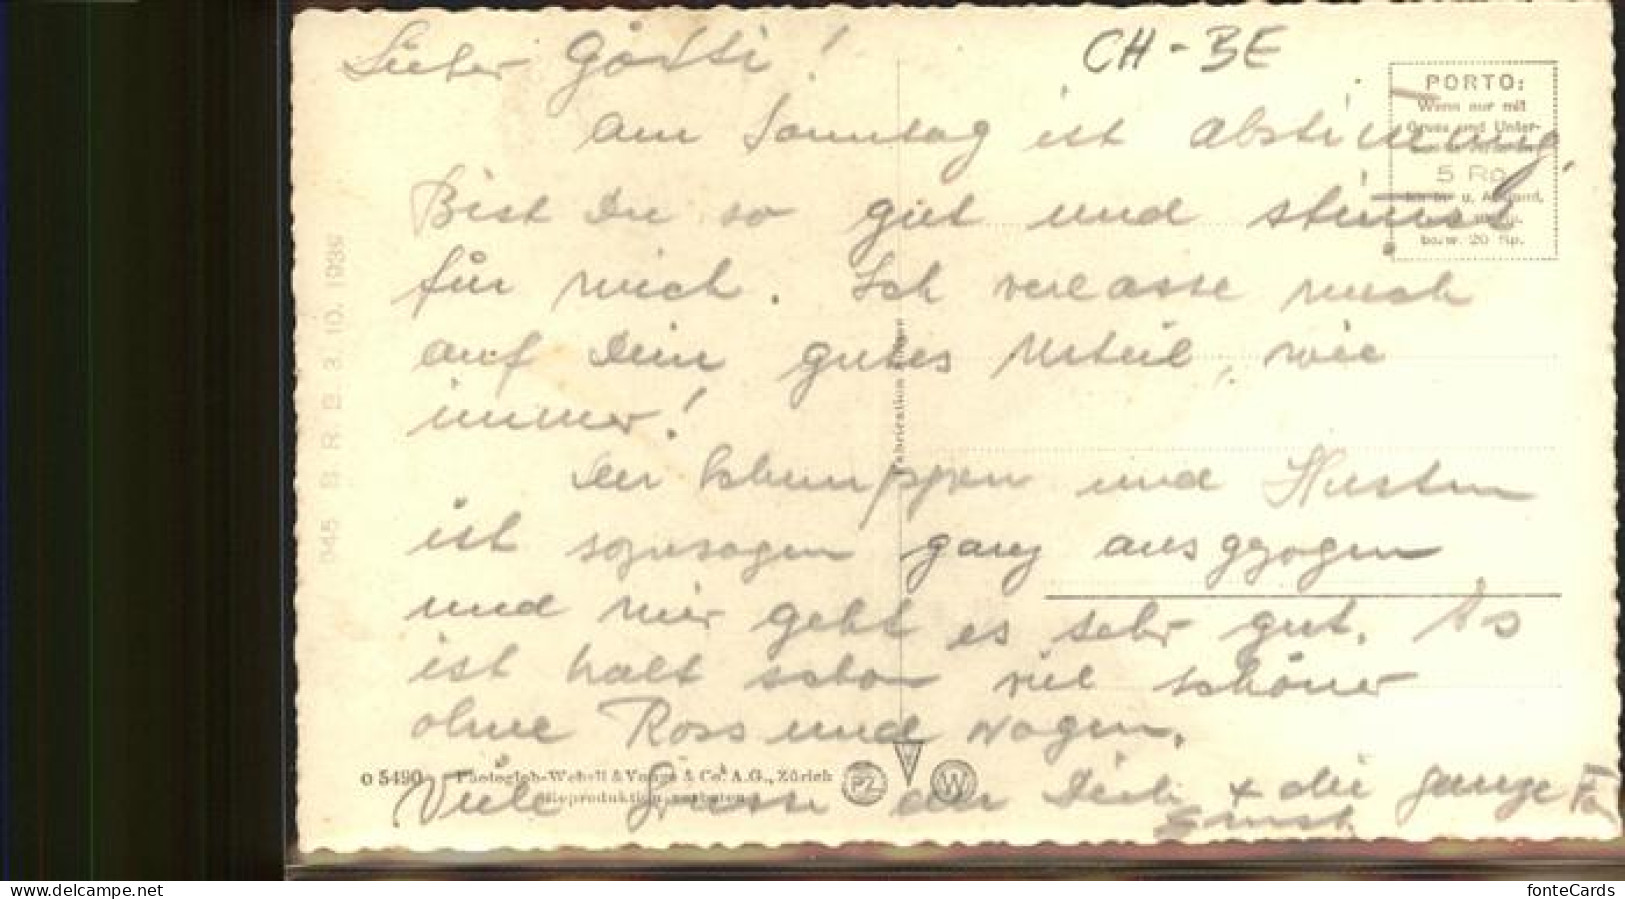 CH-BE
Lieber Götti!
am Sonntag ist abstimung,
Bist Du so gut und stimst
für mich. Ich verlasse mich
auf Dein gutes Urteil, wie
immer!
Der Schnuppen und Husten
ist sozusagen ganz ausgezogen
und mir geht es sehr gut. Es
ist halt schon viel schöner
ohne Ross und Wagen.
Viele Grüsse an Dich + die ganze Fa
Ernst
PORTO:
Wenn nur mit
Gruss und Unter-
5 Rp.
bezw. 20 Rp.
045 S. R. B. 3. 10. 1936
o 5490 Photoglob-Wehrli & Vouga & Co. A.G., Zürich
Reproduktion verboten
PZ V W
www.delcampe.net
fonteCards